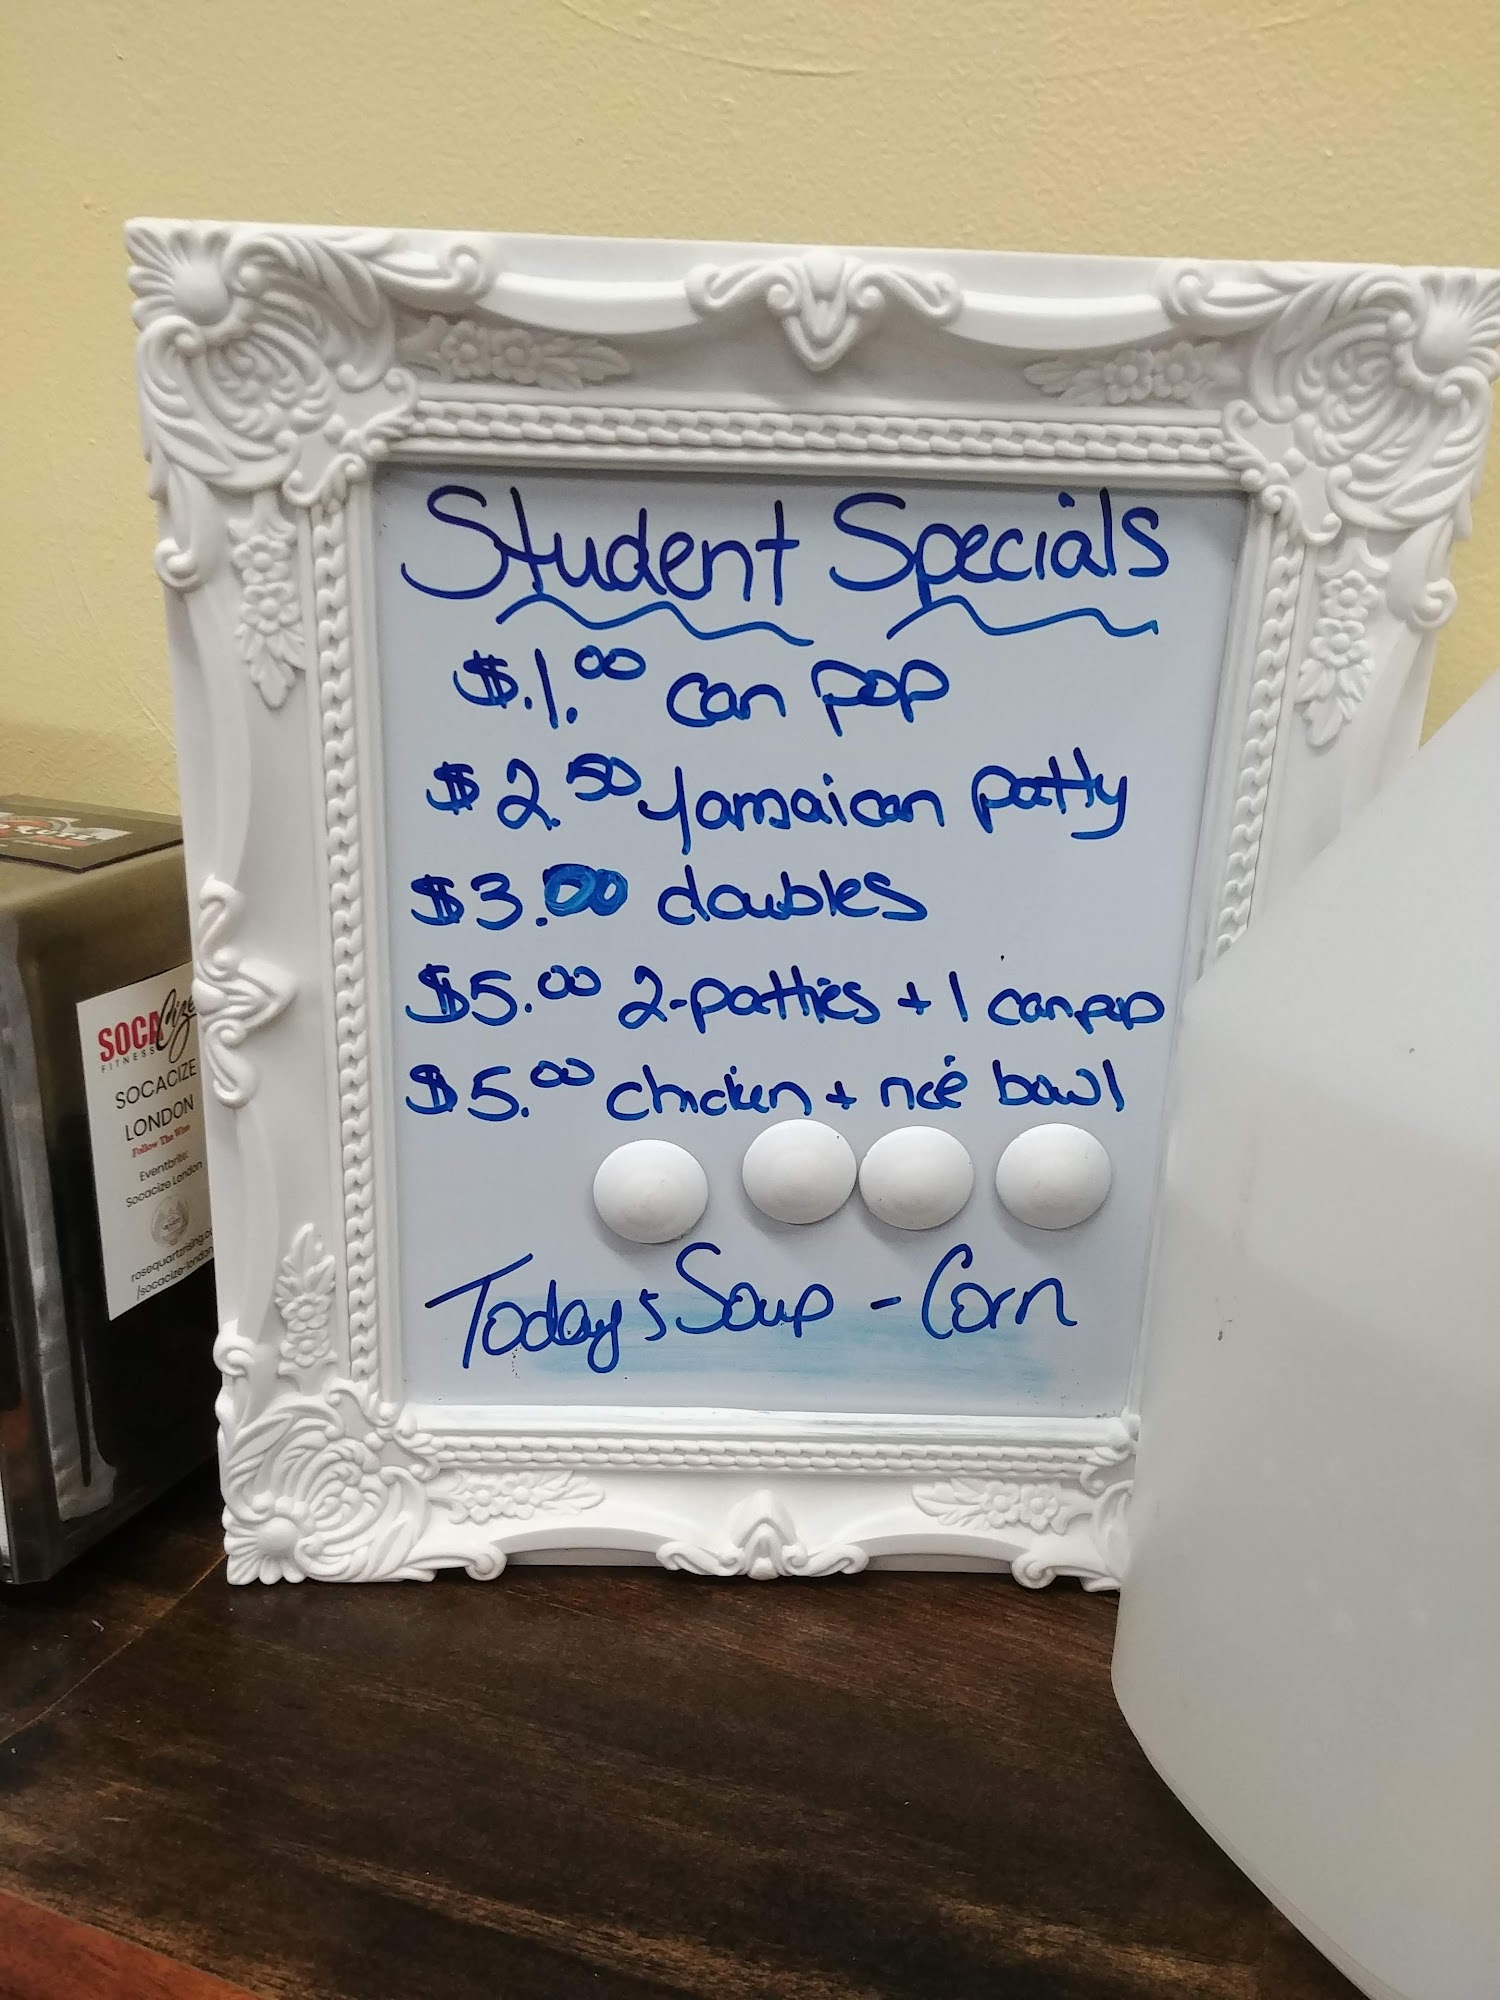 Student Specials
$.1.00 can pop
$2.50 Jamaican patty
$3.00 doubles
$5.00 2-patties + 1 can pop
$5.00 chicken + rice bowl
Today's Soup - Corn
SOCACize
FITNESS
SOCACIZE
LONDON
Follow The Wine
Eventbrite:
Socacize London
rosequartzrising.co
/socacize-london